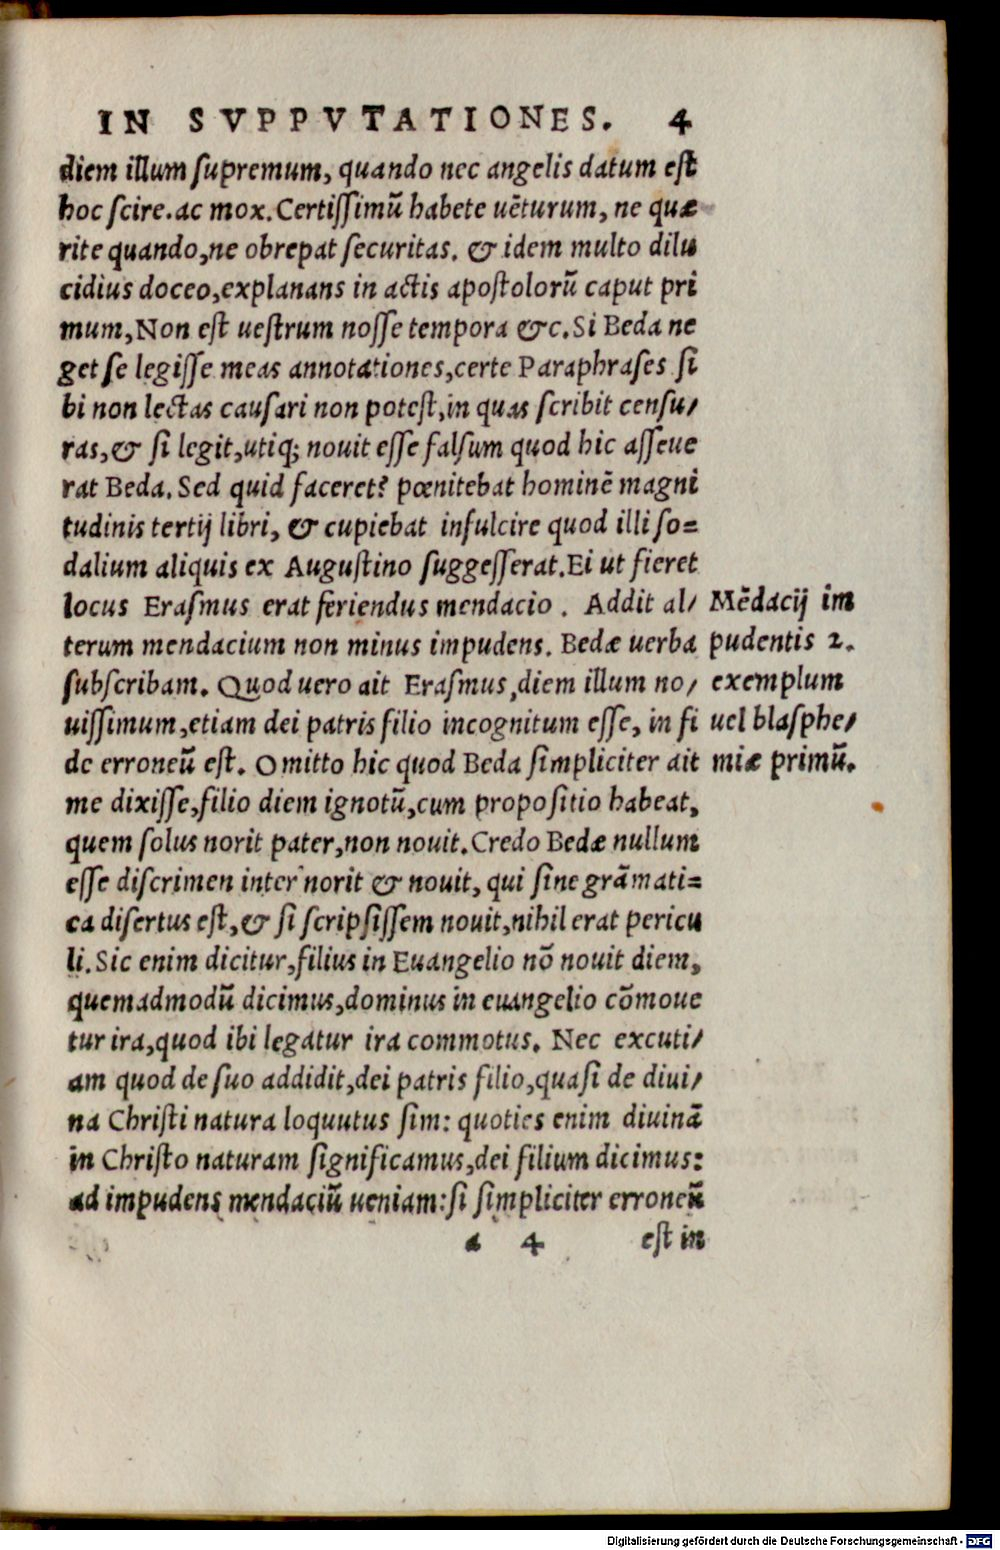 IN SVPPVTATIONES. 4
diem illum ſupremum, quando nec angelis datum eſt
hoc ſcire. ac mox. Certiſſimũ habete uẽturum, ne quæ
rite quando, ne obrepat ſecuritas. & idem multo dilu
cidius doceo, explanans in actis apoſtolorũ caput pri
mum, Non eſt ueſtrum noſſe tempora &c. Si Beda ne
get ſe legiſſe meas annotationes, certe Paraphraſes ſi
bi non lectas cauſari non poteſt, in quas ſcribit cenſu/
ras, & ſi legit, utiq; nouit eſſe falſum quod hic aſſeue
rat Beda. Sed quid faceret? pœnitebat hominẽ magni
tudinis tertij libri, & cupiebat infulcire quod illi ſo=
dalium aliquis ex Auguſtino ſuggeſſerat. Ei ut fieret
locus Eraſmus erat feriendus mendacio. Addit al/
terum mendacium non minus impudens. Bedæ uerba
ſubſcribam. Quod uero ait Eraſmus, diem illum no/
uiſſimum, etiam dei patris filio incognitum eſſe, in fi
de erroneũ eſt. Omitto hic quod Beda ſimpliciter ait
me dixiſſe, filio diem ignotũ, cum propoſitio habeat,
quem ſolus norit pater, non nouit. Credo Bedæ nullum
eſſe diſcrimen inter norit & nouit, qui ſine grãmati=
ca diſertus eſt, & ſi ſcripſiſſem nouit, nihil erat pericu
li. Sic enim dicitur, filius in Euangelio nõ nouit diem,
quemadmodũ dicimus, dominus in euangelio cõmoue
tur ira, quod ibi legatur ira commotus. Nec excuti/
am quod de ſuo addidit, dei patris filio, quaſi de diui/
na Chriſti natura loquutus ſim: quoties enim diuinã
in Chriſto naturam ſignificamus, dei filium dicimus:
ad impudens mendaciũ ueniam: ſi ſimpliciter erroneũ
a 4 eſt in
Mẽdacij im
pudentis 2.
exemplum
uel blaſphe/
miæ primũ.
Digitalisierung gefördert durch die Deutsche Forschungsgemeinschaft - DFG